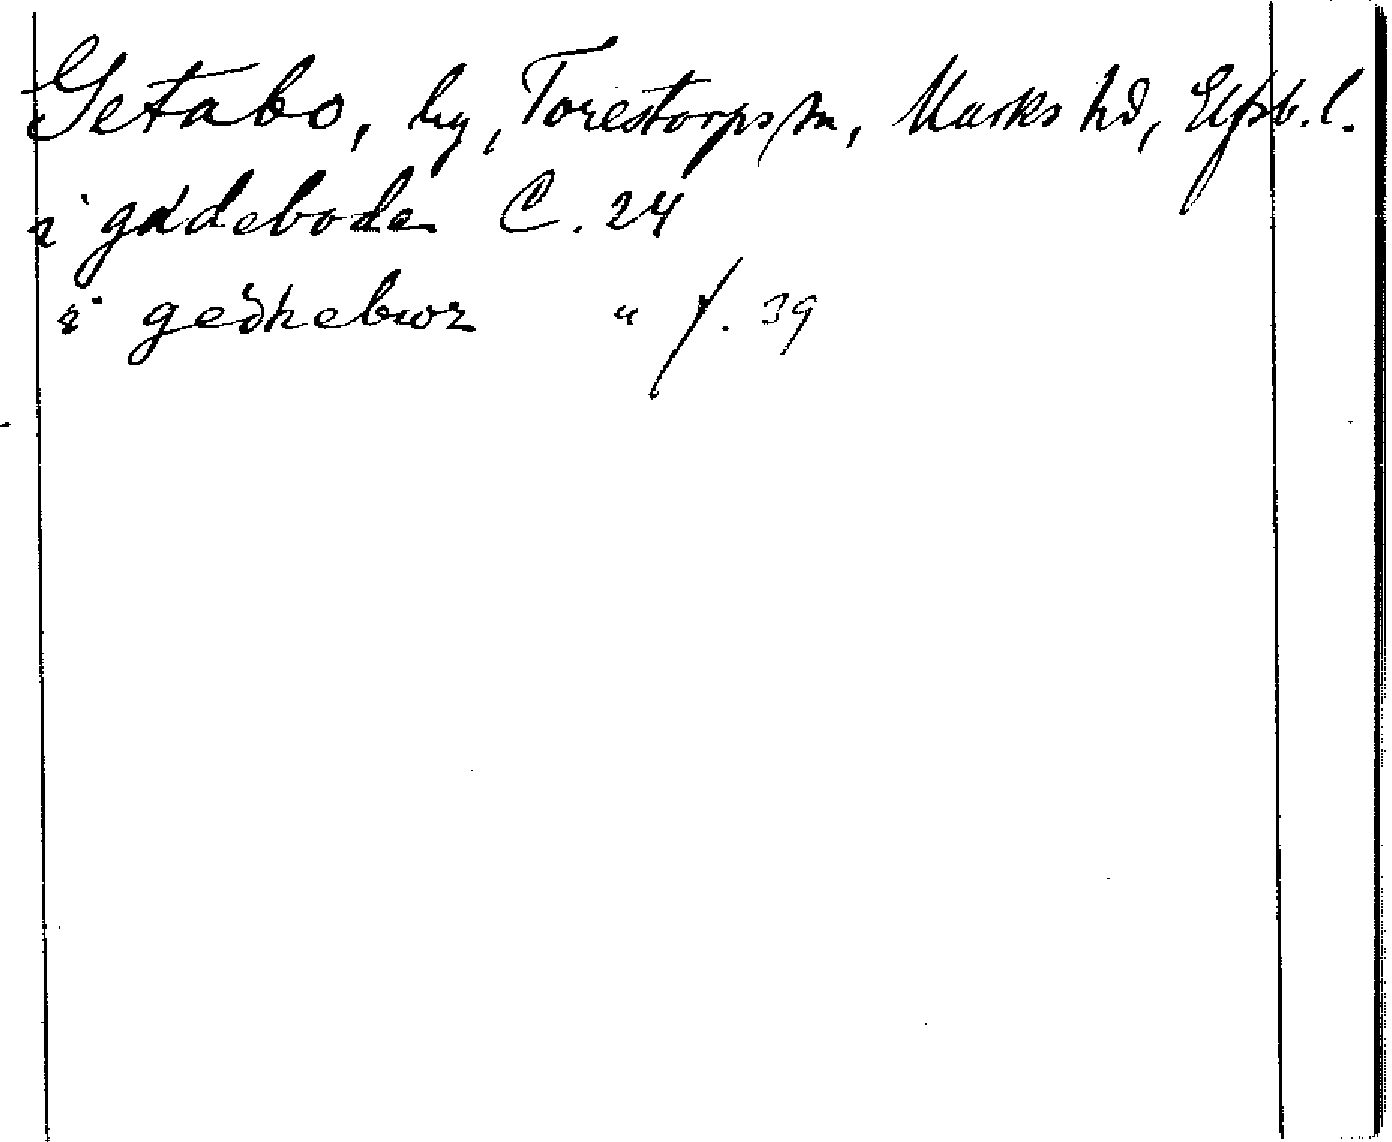 Getabo, by, Torestorps sn, Marks hd, Elfsb. l.
i gädeboda C. 24
i geðhebwz " f. 39